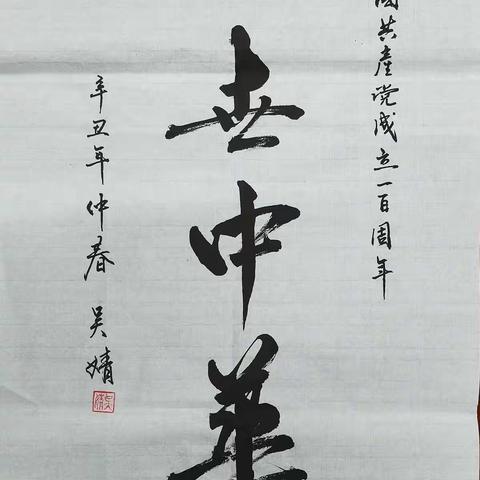 國共產党成立一百周年
世中華
辛丑年仲春 吴婧